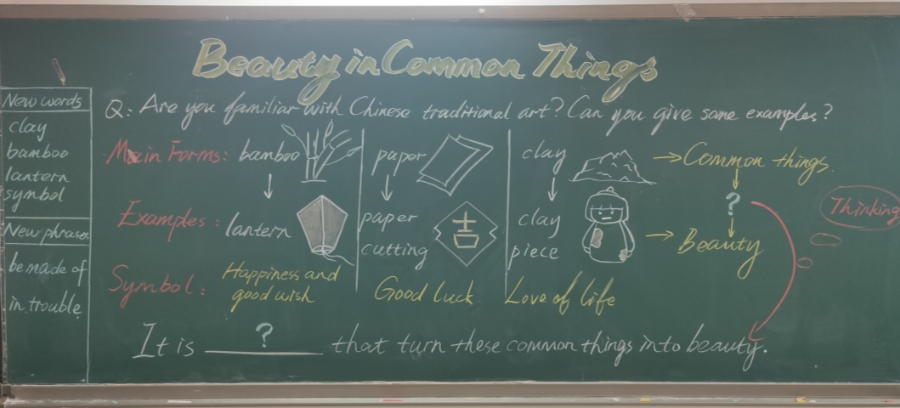 Beauty in Common Things
New words
clay
bamboo
lantern
symbol
New phrases
be made of
in trouble
Q: Are you familiar with Chinese traditional art? Can you give some examples?
Main Forms: bamboo paper clay → Common things.
?
Thinking
Examples: lantern paper cutting 吉 clay piece → Beauty
Symbol: Happiness and good wish Good luck Love of life
It is ? that turn these common things into beauty.